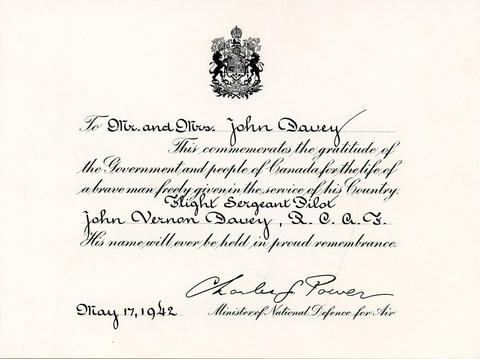 To Mr. and Mrs. John Davey
This commemorates the gratitude of
the Government and people of Canada for the life of
a brave man freely given in the service of his Country.
Flight Sergeant Pilot
John Vernon Davey, R.C.A.F.
His name will ever be held in proud remembrance.
Charles G Power
May 17, 1942 Minister of National Defence for Air